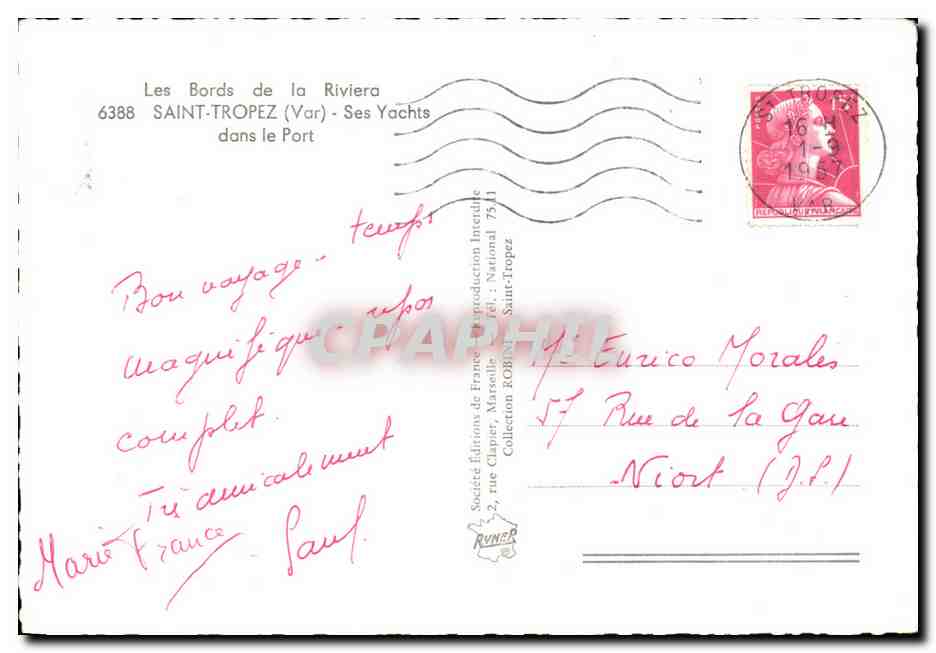 Les Bords de la Riviera
6388 SAINT-TROPEZ (Var) - Ses Yachts
dans le Port
ST TROPEZ
16 H
1-9
1957
VAR
REPUBLIQUE FRANÇAISE
Bon voyage - temps
magnifique - repos
complet.
Très amicalement
Marie France
Paul.
Société Éditions de France Reproduction Interdite
2, rue Clapier, Marseille Tél. : National 75.11
Collection ROBINI Saint-Tropez
RYNER
CPAPHIL
Mr Enrico Morales
57 Rue de la Gare
Niort (D.S.)